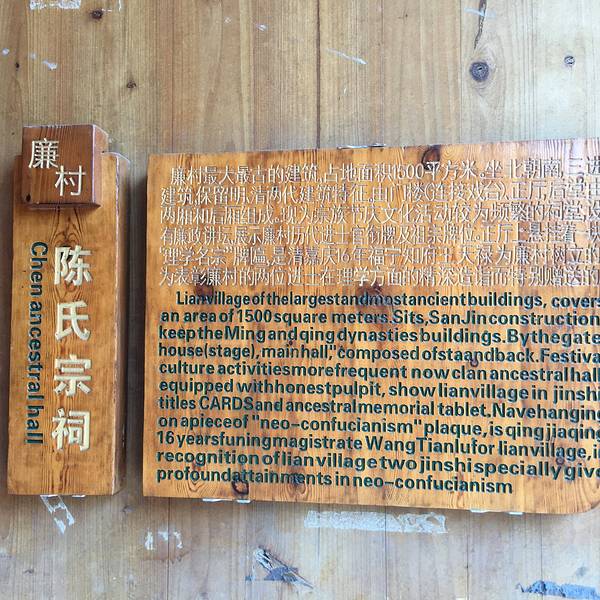 廉村
陈氏宗祠
Chen ancestral hall
廉村最大最古的建筑,占地面积1500平方米。坐北朝南,三进
建筑,保留明、清两代建筑特征,由门楼(连接戏台)、正厅后堂
两厢和后厢组成。现为宗族节庆文化活动较为频繁的祠堂,设
有廉政讲坛,展示廉村历代进士官衔牌及祖宗牌位。正厅上悬挂着一块
"理学名宗"牌匾,是清嘉庆16年福宁知府王大禄为廉村树立的
为表彰廉村的两位进士在理学方面的精深造诣而特别赠送的
Lian village of the largest and most ancient buildings, covers
an area of 1500 square meters. Sits, San Jin construction
keep the Ming and qing dynasties buildings. By the gate
house(stage), main hall," composed of sta and back. Festiva
culture activities more frequent now clan ancestral hall
equipped with honest pulpit, show lian village in jinshi
titles CARDS and ancestral memorial tablet. Nave hanging
on a piece of "neo-confucianism" plaque, is qing jiaqing
16 years funing magistrate Wang Tianlu for lian village, i
recognition of lian village two jinshi specially give
profound attainments in neo-confucianism